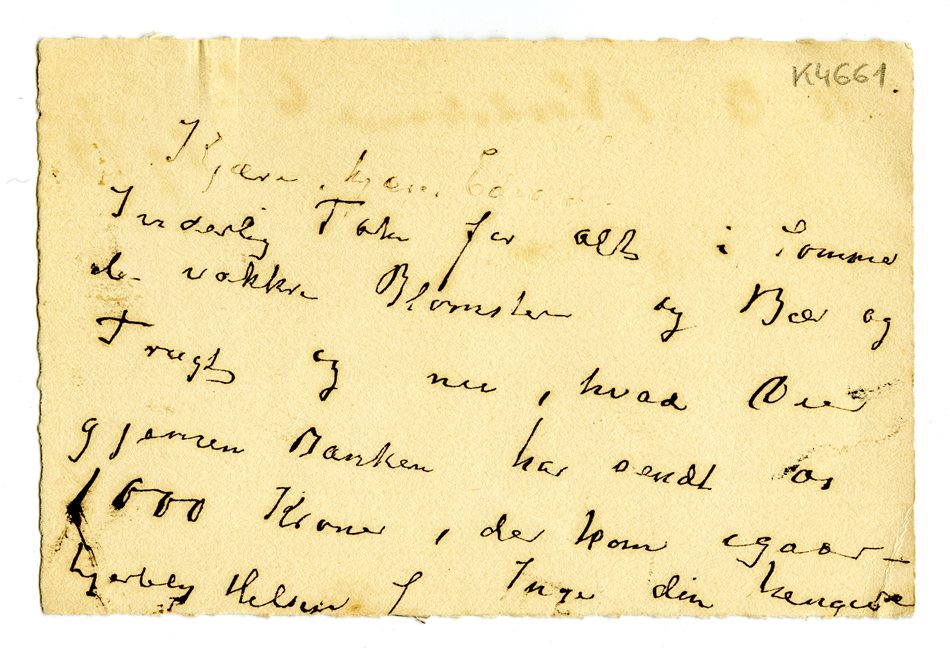 K4661.
Kjære, kjære Edvard
Inderlig Tak for alt i Sommer
de vakkre Blomster og Bær og
Frugt og nu, hvad Du
gjennem Banken har sendt os
1000 Kroner, der kom igaar –
hjertelig Hilsen f Inga din hengivne